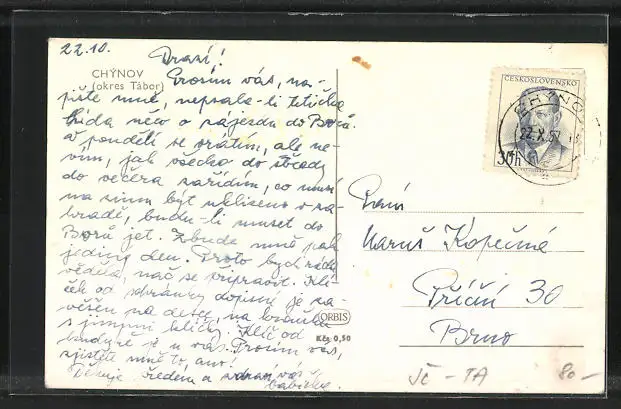 22.10.
Drazí!
CHÝNOV
(okres Tábor)
Prosím vás, na-
pište mně, nepsala-li tetička
Lída něco o zájezdu do Borů.
V pondělí se vrátím, ale ne-
vím, jak všecko do středy
do večera zařídím, co musí
na zimu být uklizeno v za-
hradě, budu-li muset do
Borů jet. Zbude mně pak
jediný den. Proto bych ráda
věděla, nač se připravit. Klí-
ček od schránky dopisní je za-
věšen na desce, na kroužku
s jinými klíčky. Klíč od
kuchyně je u vás. Prosím vás,
zjistěte mně to, ano!
Děkuje, všední a zdraví vás
babička.
ČESKOSLOVENSKO
30h
CHÝNOV
22.X.57
Paní
Maruš Kopečná
Příční 30
Brno
ORBIS
Kčs 0,50
JČ - TA
80-